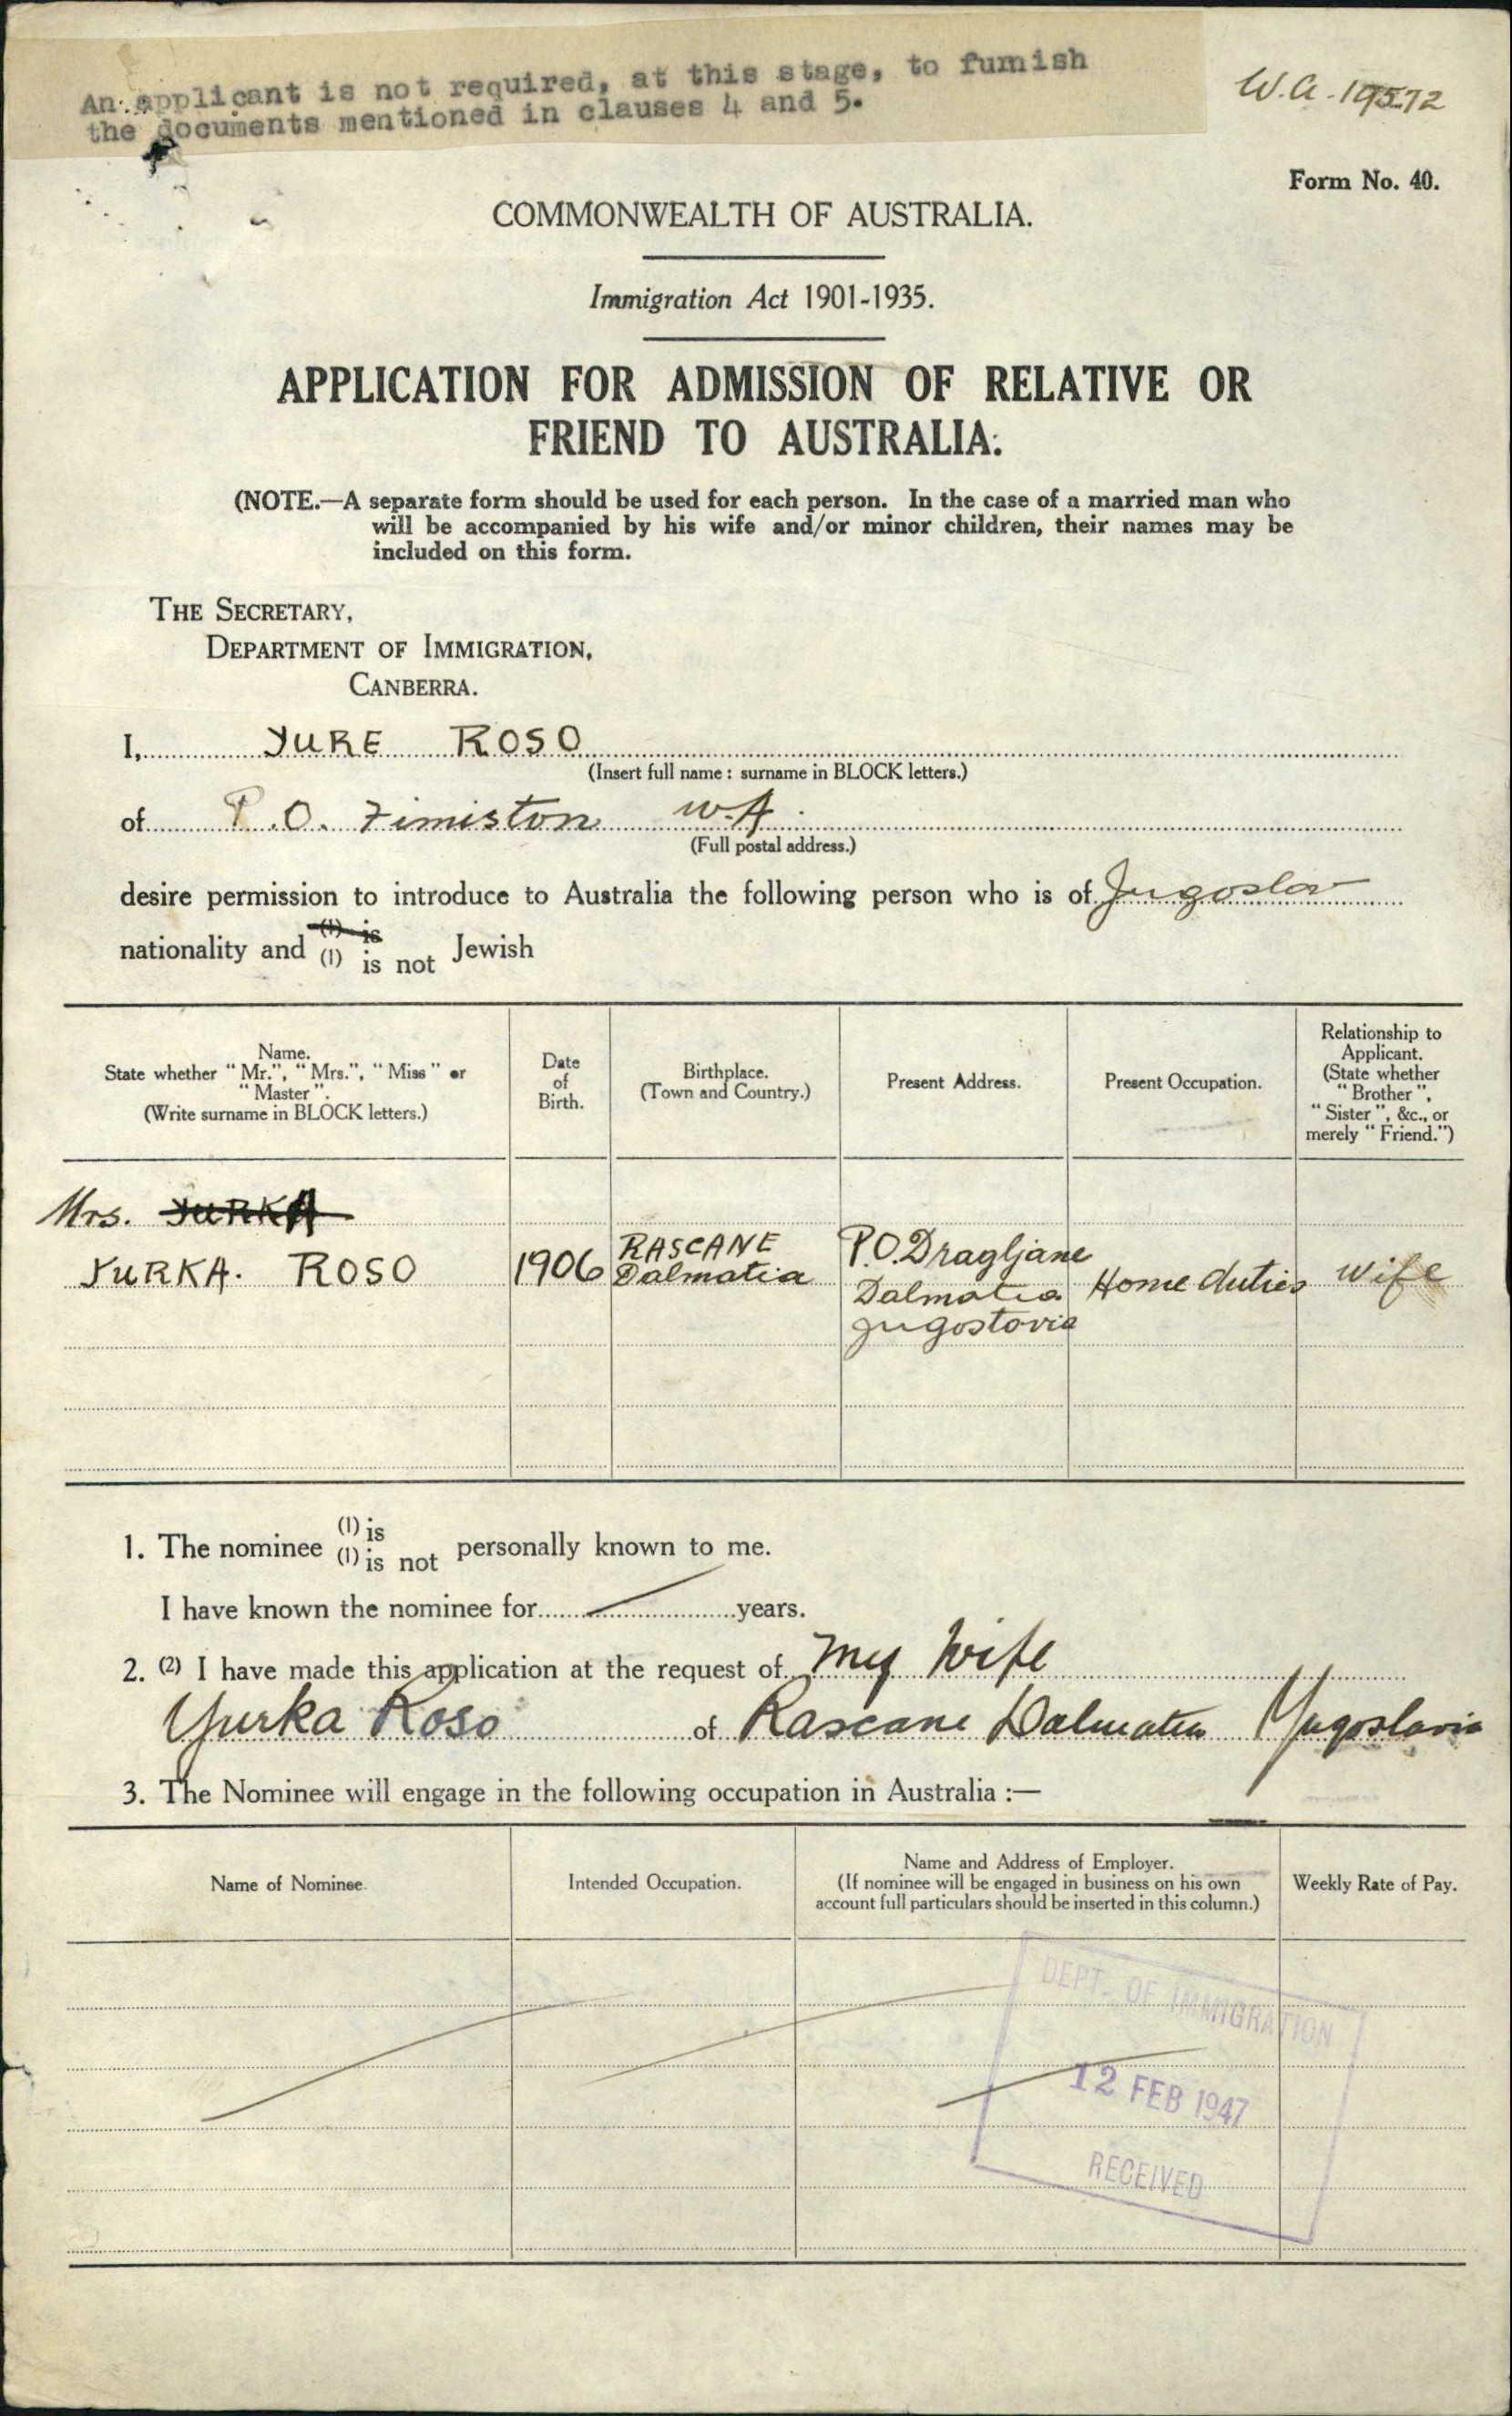 An applicant is not required, at this stage, to furnish
the documents mentioned in clauses 4 and 5.
W.A. 19572
Form No. 40.
COMMONWEALTH OF AUSTRALIA.
Immigration Act 1901-1935.
APPLICATION FOR ADMISSION OF RELATIVE OR
FRIEND TO AUSTRALIA.
(NOTE.—A separate form should be used for each person. In the case of a married man who
will be accompanied by his wife and/or minor children, their names may be
included on this form.
THE SECRETARY,
DEPARTMENT OF IMMIGRATION,
CANBERRA.
I, YURE ROSO
(Insert full name: surname in BLOCK letters.)
of P.O. Fimiston W.A.
(Full postal address.)
desire permission to introduce to Australia the following person who is of Jugoslav
nationality and (1) is
(1) is not Jewish
Name.
State whether "Mr.", "Mrs.", "Miss" or
"Master".
(Write surname in BLOCK letters.)
Date
of
Birth.
Birthplace.
(Town and Country.)
Present Address.
Present Occupation.
Relationship to
Applicant.
(State whether
"Brother",
"Sister", &c., or
merely "Friend.")
Mrs. YURKA
YURKA. ROSO
1906
RASCANE
Dalmatia
P.O. Dragljane
Dalmatia
Jugostovia
Home duties
Wife
1. The nominee (1) is
(1) is not personally known to me.
I have known the nominee for years.
2. (2) I have made this application at the request of My Wife
Yurka Roso of Rascane Dalmatia Yugoslavia
3. The Nominee will engage in the following occupation in Australia :—
Name of Nominee.
Intended Occupation.
Name and Address of Employer.
(If nominee will be engaged in business on his own
account full particulars should be inserted in this column.)
Weekly Rate of Pay.
DEPT. OF IMMIGRATION
12 FEB 1947
RECEIVED